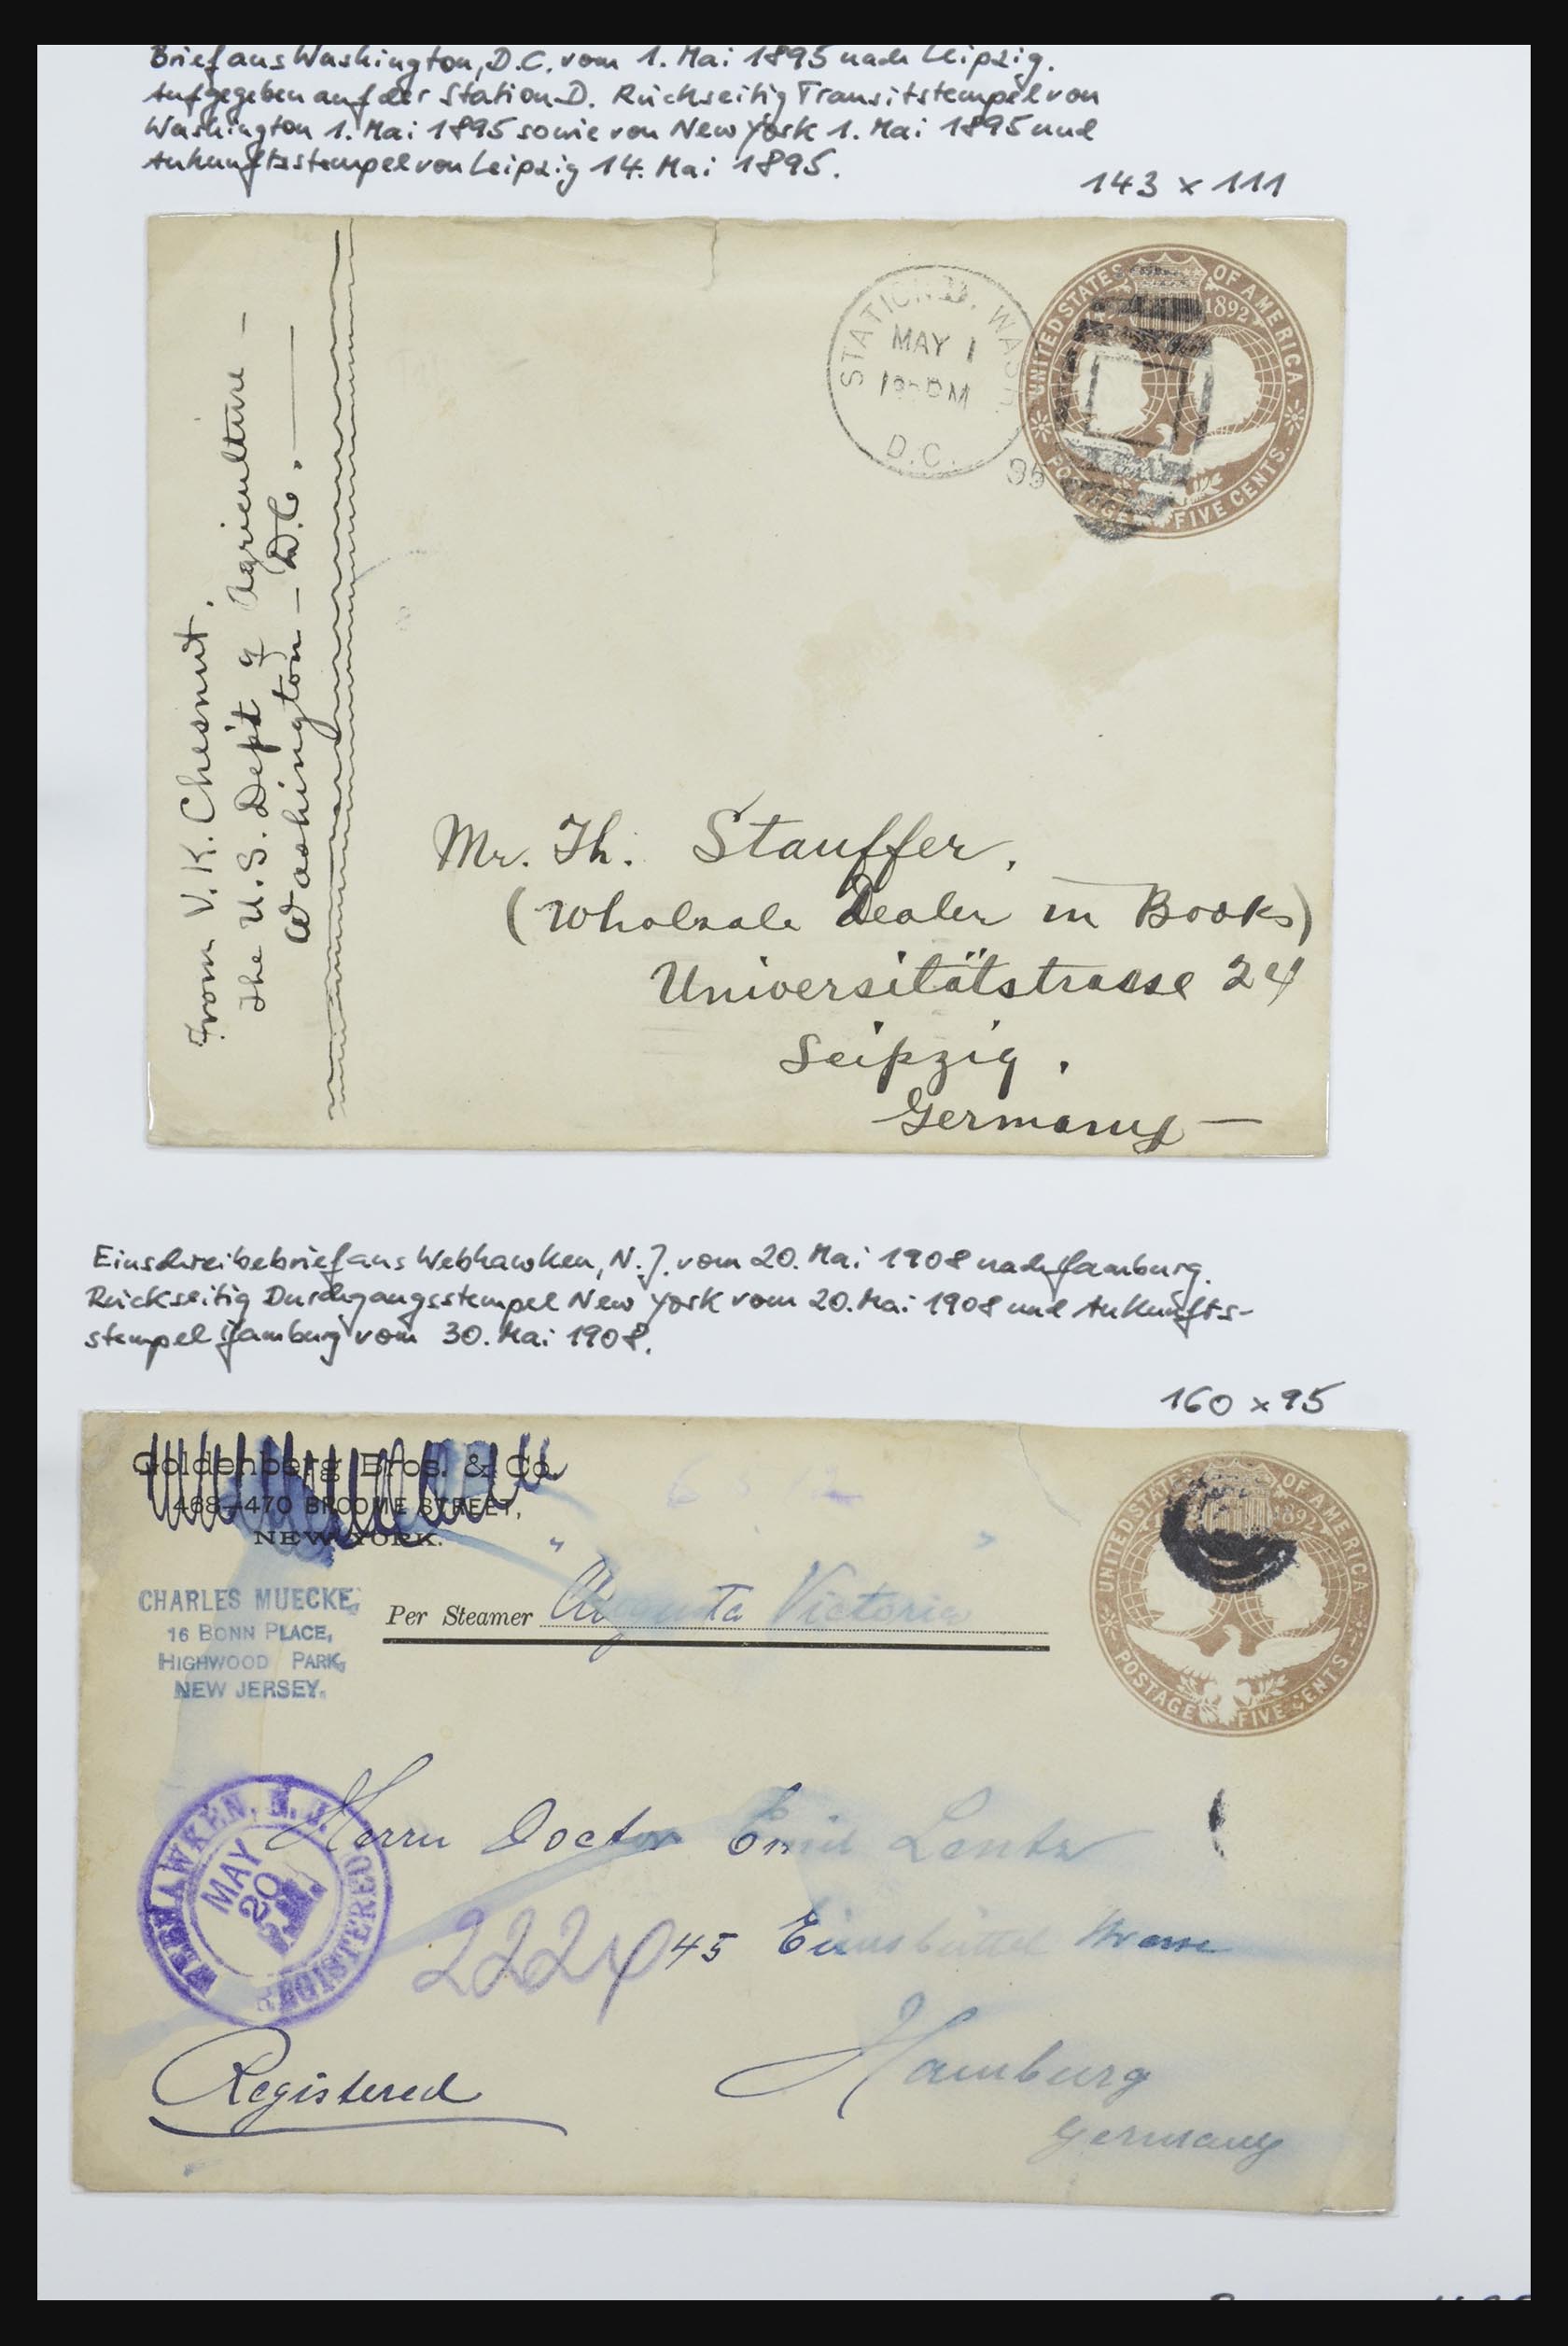 Brief aus Washington, D.C. vom 1. Mai 1895 nach Leipzig.
Aufgegeben auf der Station D. Rückseitig Transitstempel von
Washington 1. Mai 1895 sowie von New York 1. Mai 1895 und
Ankunftsstempel von Leipzig 14. Mai 1895.
143 x 111
From V. K. Chesnut.
The U.S. Dep't of Agriculture -
Washington - D.C.
STATION D. WASH.
MAY 1
PM
D.C.
95
UNITED STATES OF AMERICA
1892
POSTAGE FIVE CENTS.
Mr. Th. Stauffer,
(Wholesale Dealer in Books)
Universitätstrasse 24
Leipzig.
Germany -
Einschreibebrief aus Webhawken, N.J. vom 20. Mai 1908 nach Hamburg.
Rückseitig Durchgangsstempel New York vom 20. Mai 1908 und Ankunfts-
stempel Hamburg vom 30. Mai 1908.
160 x 95
Goldenberg Bros. & Co.
468-470 BROOME STREET,
NEW YORK.
CHARLES MUECKE,
16 BONN PLACE,
HIGHWOOD PARK,
NEW JERSEY.
Per Steamer "Augusta Victoria"
UNITED STATES OF AMERICA
1892
POSTAGE FIVE CENTS.
WEEHAWKEN, N.J.
MAY
20
REGISTERED
Herrn Doctor Emil Lentz
2224
45 Eimsbüttel Strasse
Registered
Hamburg
Germany